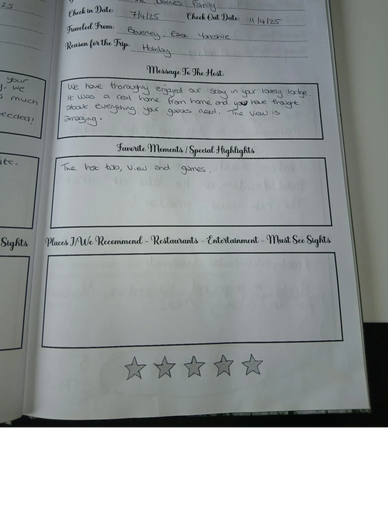 25
Family
Check in Date: 7/4/25 Check Out Date: 11/4/25
Traveled From: Beverley, East Yorkshire
Reason for the Trip: Holiday
Message To The Host:
your
We have thoroughly enjoyed our stay in your lovely lodge.
we
It was a real home from home and you have thought
much
about everything your guests need. The view is
eeded!
amazing.
Favorite Moments / Special Highlights
te.
The hot tub, view and games.
Sights
Places I/We Recommend - Restaurants - Entertainment - Must See Sights